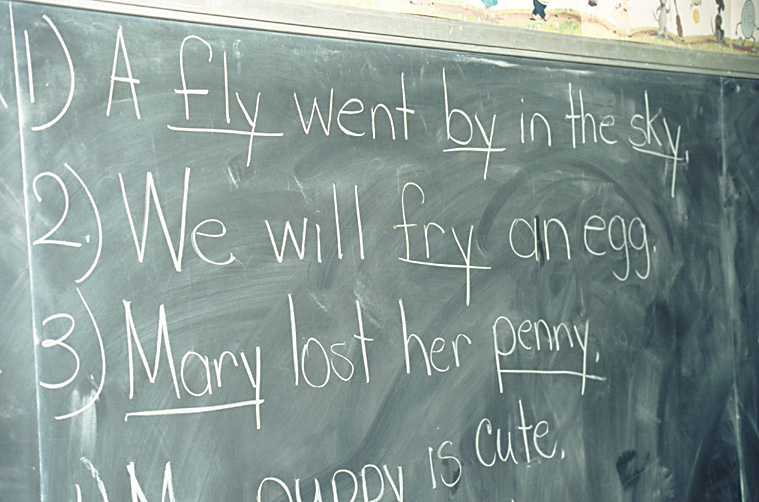 1.) A fly went by in the sky.
2.) We will fry an egg.
3.) Mary lost her penny.
puppy is cute.